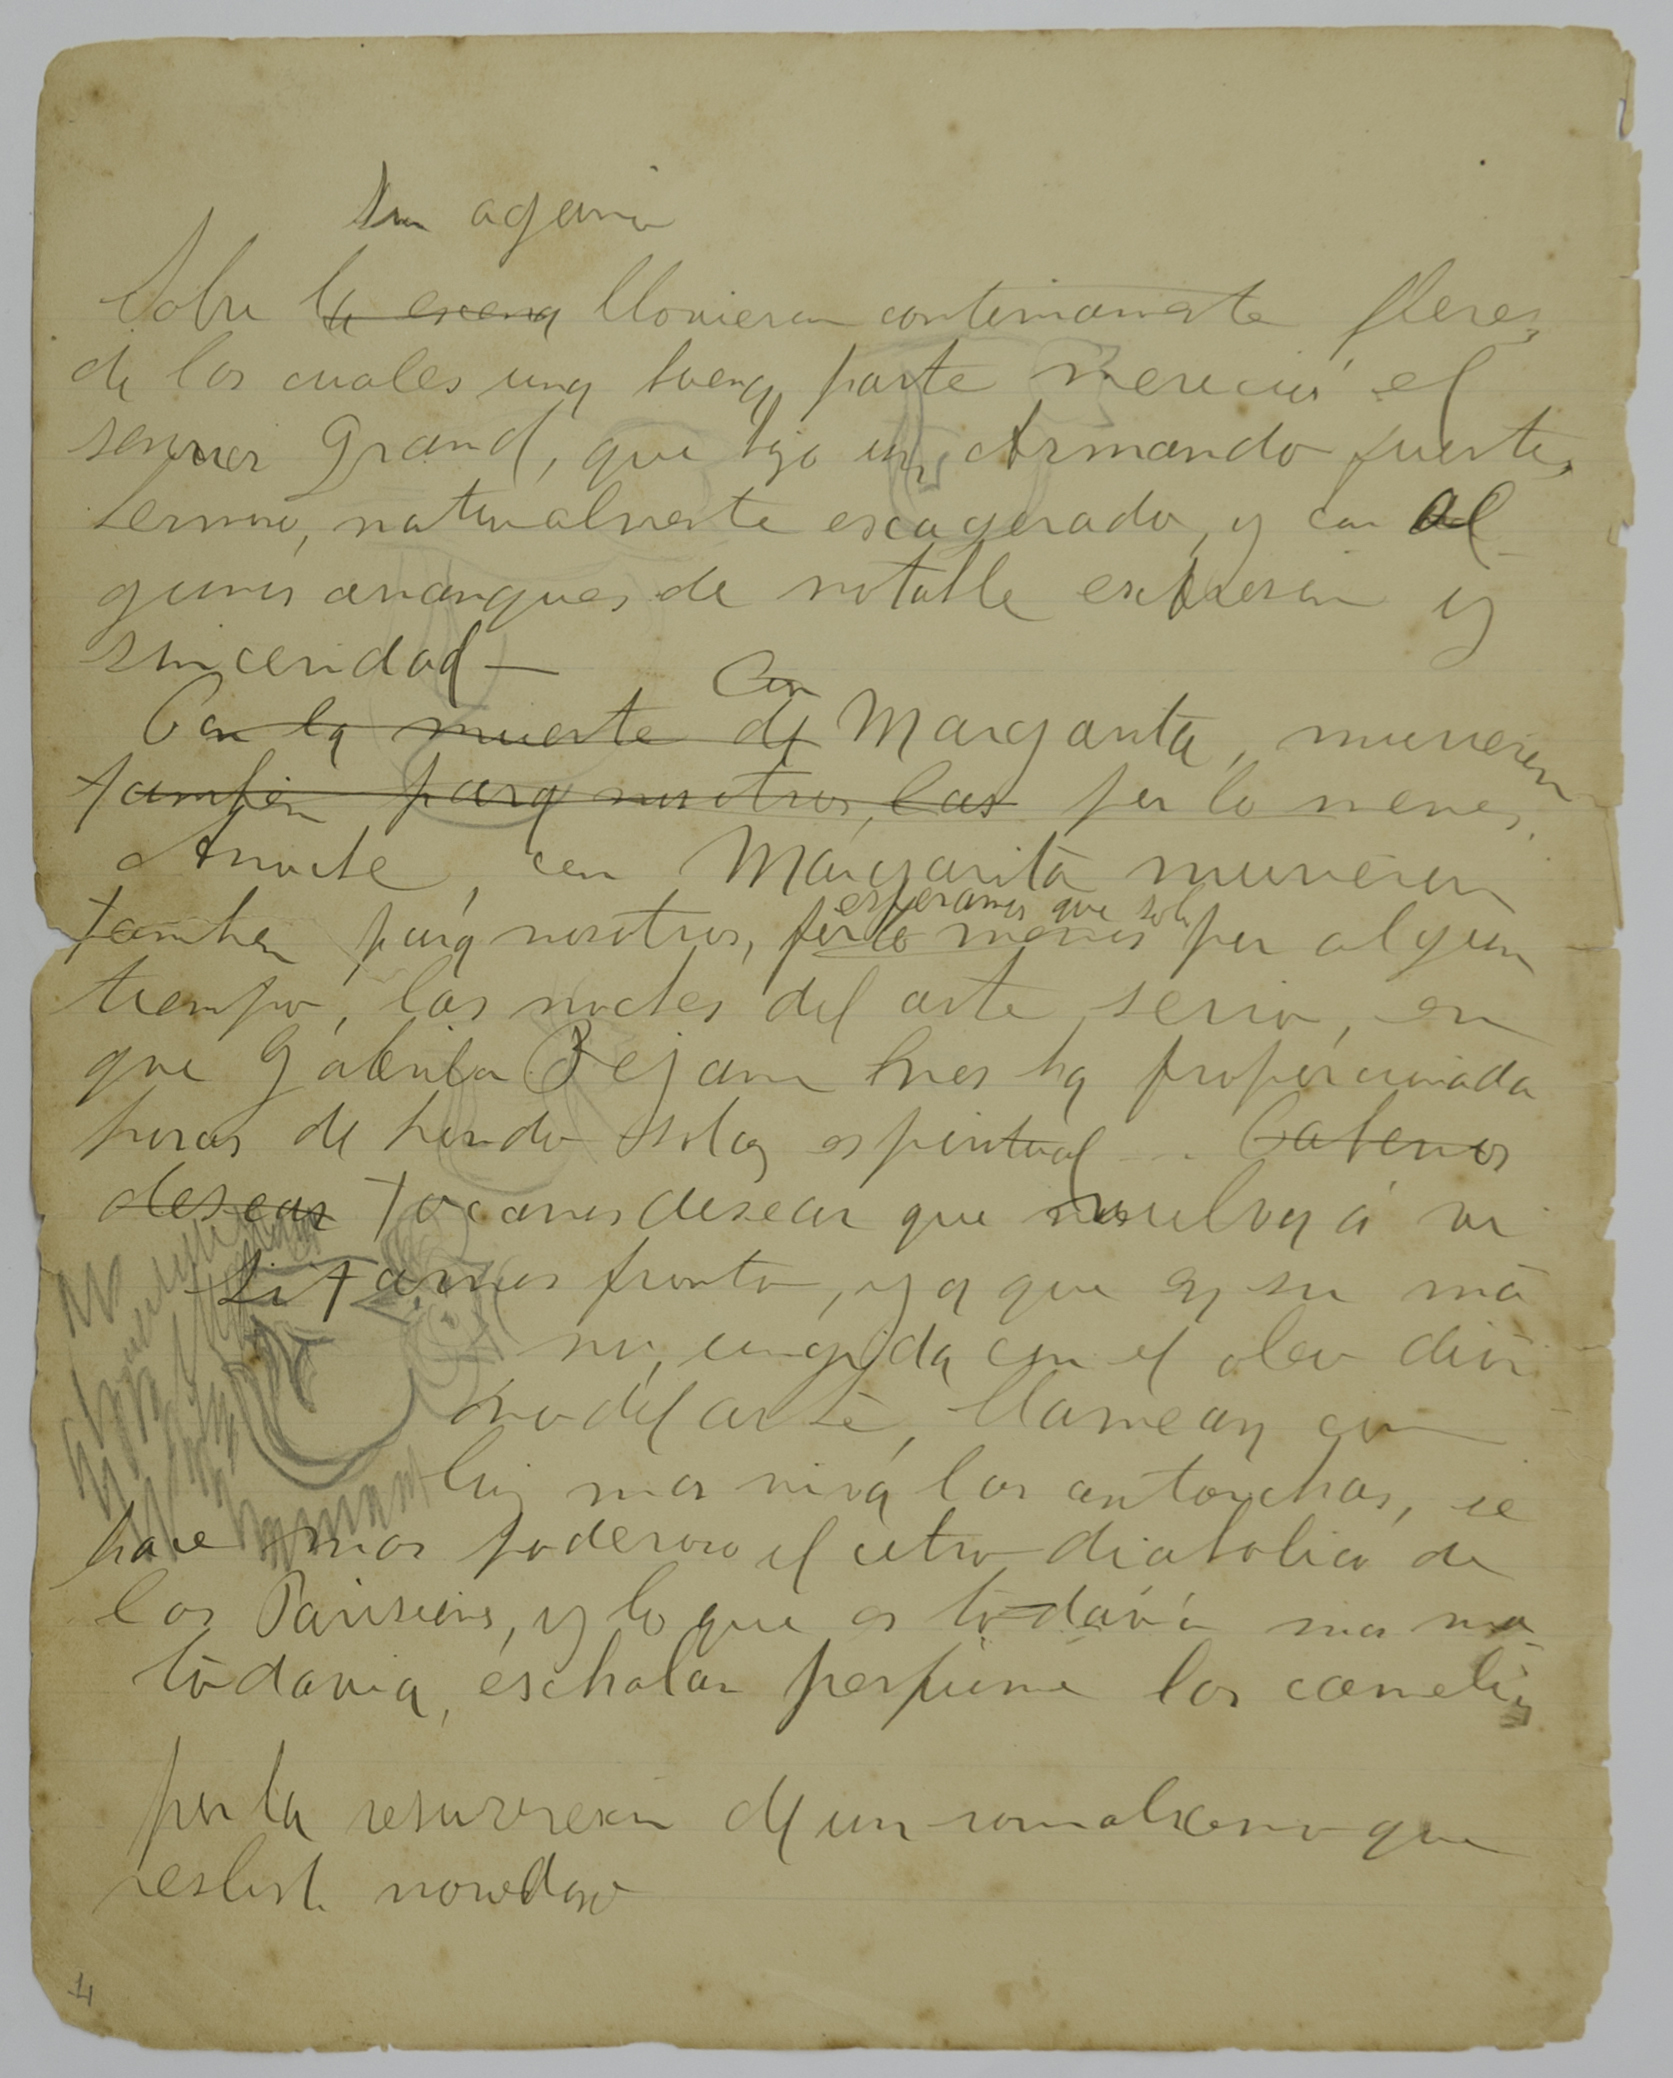 Su agonia
Sobre la escena llovieron continuamente flores,
de los cuales una buena parte mereció el
señor Grand, que hizo un Armando fuerte,
tierno, naturalmente escagerado, y con al
gunos arranques de notable expresion y
sinceridad—
Con
Con la muerte de Margarita, murieron
tambien para nosotros, las por lo menos,
Anoche, con Margarita murieron
esperamos que solo
tambien para nosotros, por lo menos por algun
tiempo, las noches del arte serio, en
que Gabriela Bejane nos ha proporcionado
horas de hondo solaz espiritual - . Cabenos
desear tocanos desear que vuelva á vi
sitarnos pronto, ya que en su ma
no, ungida con el oleo divi
no del arte, llamean con
luz mas viva las antorchas, se
hace mas poderoso el cetro diabolico de
las Parisiens, y lo que es todavía mas
todavia, eschalan perfume las camelias
por la resurrexion de un romantico que
4